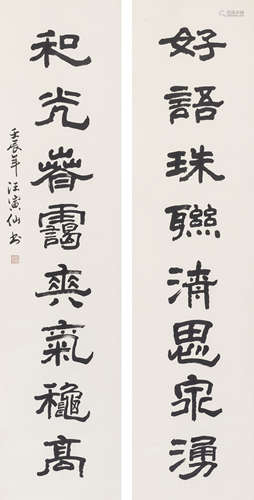 好語珠聯清思泉湧
和光春靄爽氣穐高
壬辰年汪寅仙书